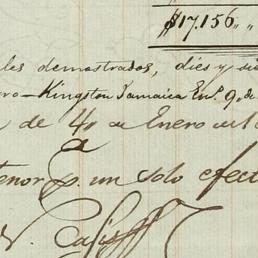 $17.156,,,
les demostrados, dies y si
ro - Kingston Jamaica En.º 9, de
de 4 de Enero de
a
enor p. un solo efect